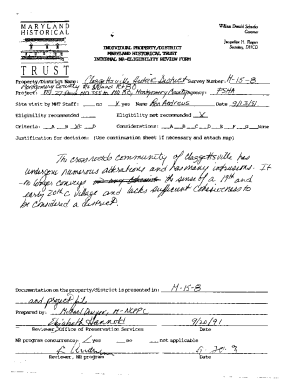 MARYLAND
HISTORICAL
TRUST
William Donald Schaefer
Governor
Jacqueline H. Rogers
Secretary, DHCD
INDIVIDUAL PROPERTY/DISTRICT
MARYLAND HISTORICAL TRUST
INTERNAL NR-ELIGIBILITY REVIEW FORM
Property/District Name: Claggettsville Historic District Survey Number: M-15-8
Project: Agency: FSHA
Site visit by MHT Staff: no X yes Name Ron Andrews Date 9/13/91
Eligibility recommended Eligibility not recommended X
Criteria: A B C D Considerations: A B C D E F G None
Justification for decision: (Use continuation sheet if necessary and attach map)
The crossroads community of Claggettsville has
undergone numerous alterations and has many intrusions. It
no longer conveys the sense of a 19th and
early 20th C village and lacks sufficient cohesiveness to
be considered a district.
Documentation on the property/district is presented in: M-15-8
and project file
Prepared by: Michael Dwyer, M-NCPPC
Elizabeth Hannold 9/20/91
Reviewer, Office of Preservation Services Date
NR program concurrence: ✓ yes no not applicable
Reviewer, NR program Date